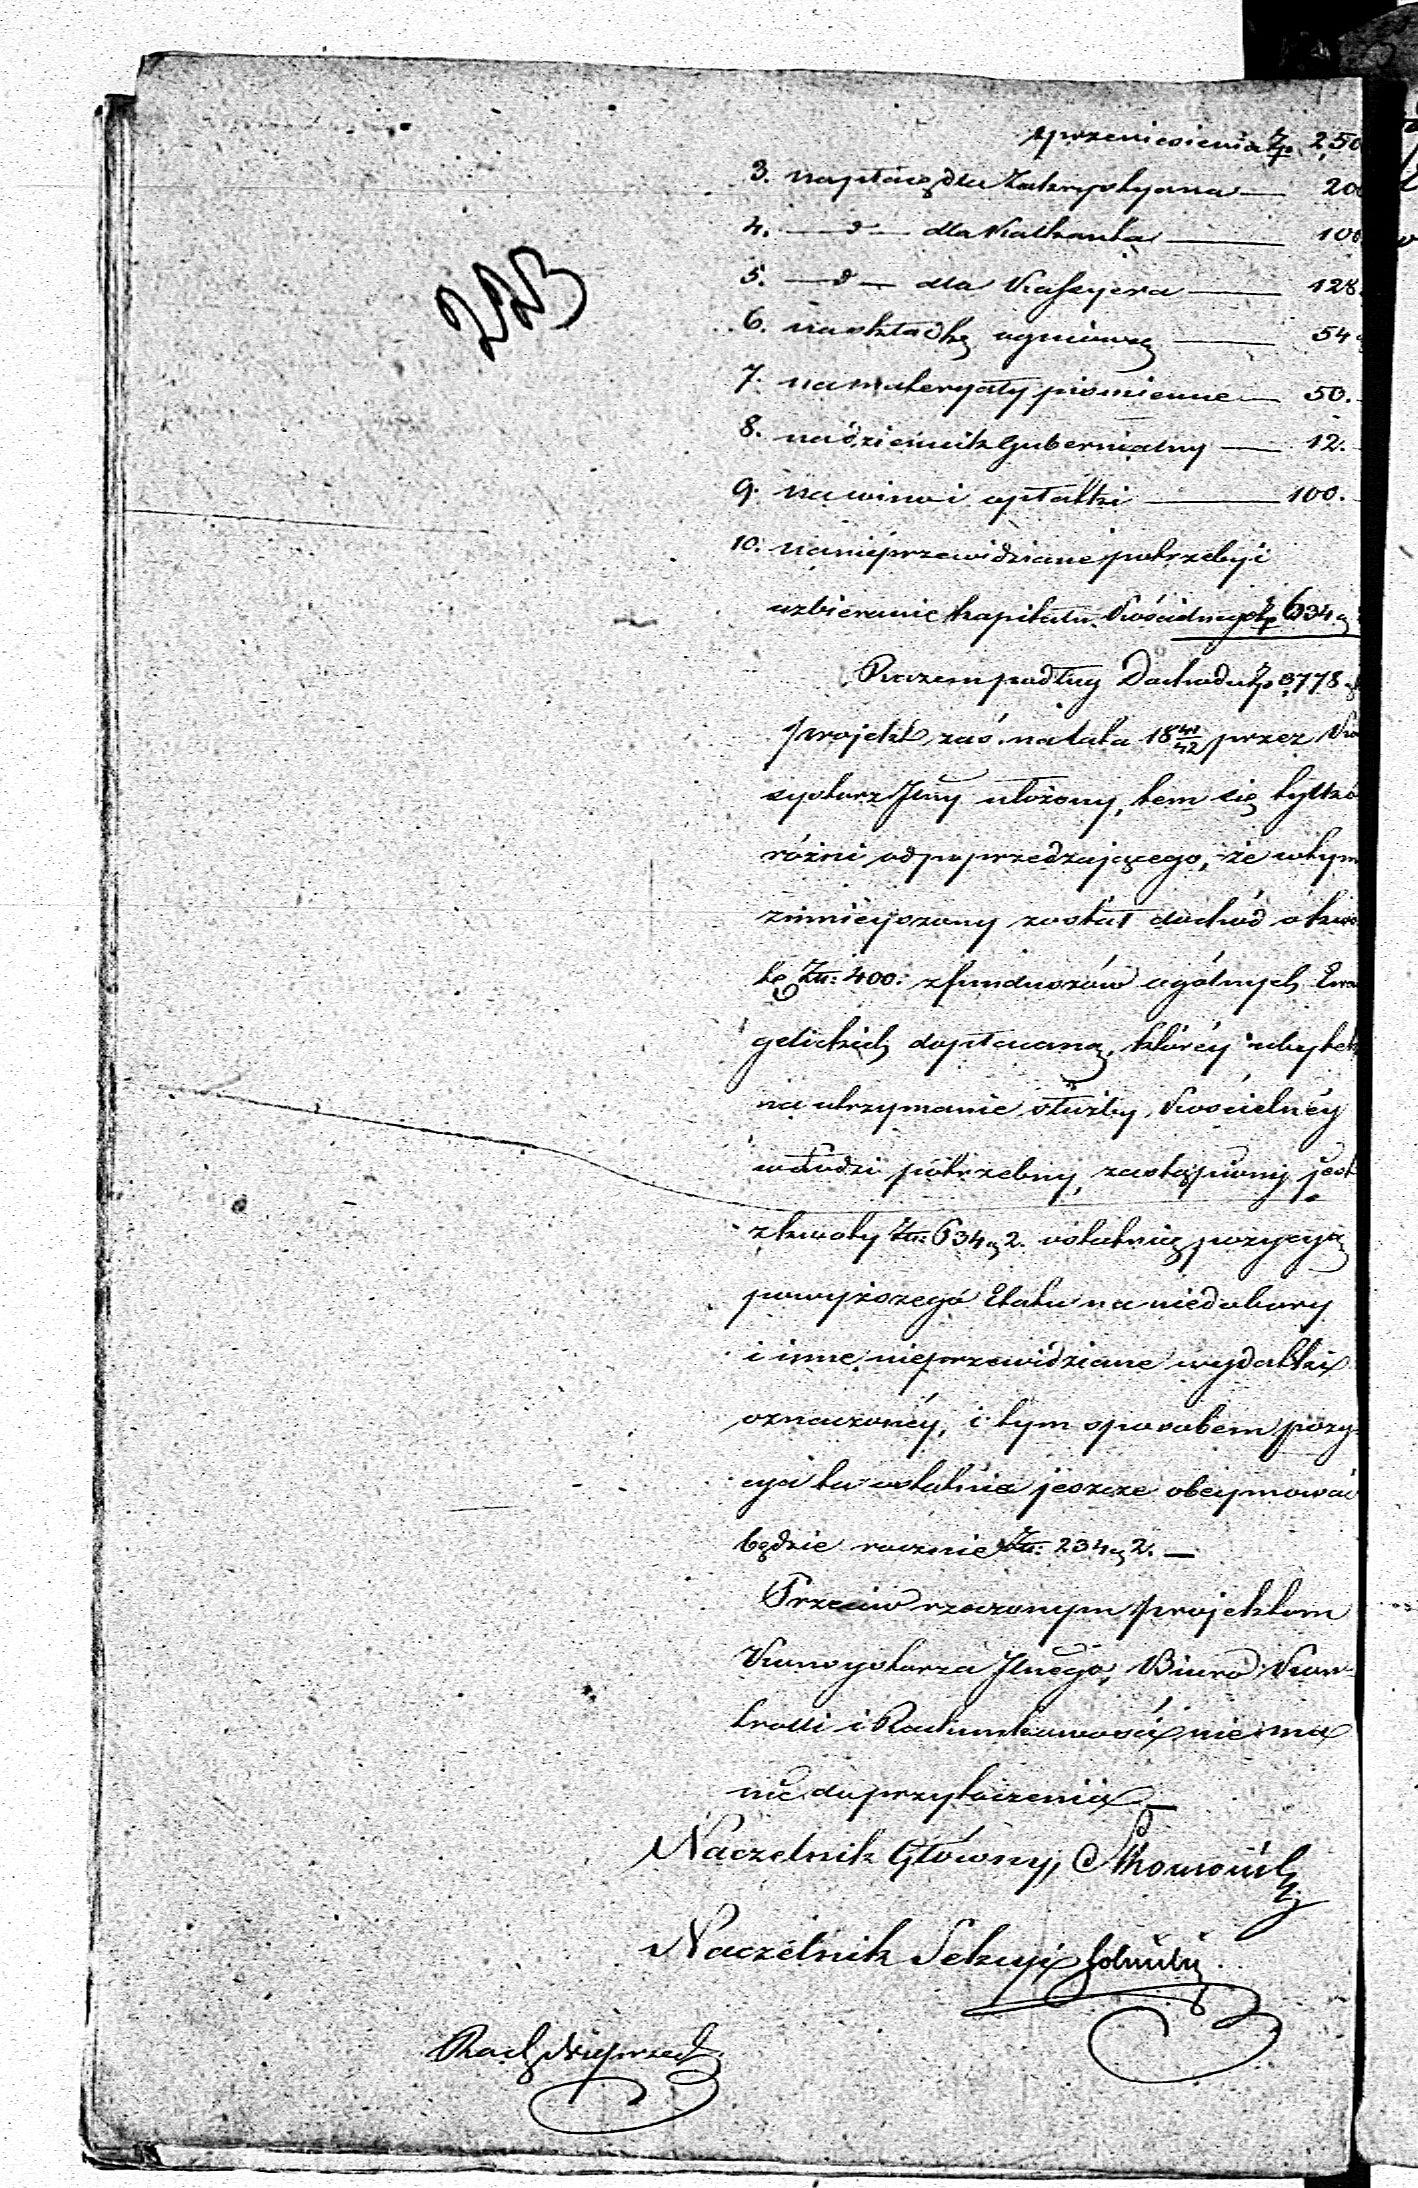 z przeniesienia Zp. 2,50
3. na płacę dla Zakrystyana — 20
4. — d — dla Kalkanta — 100
5. — d — dla Kassyera — 128
6. na składkę ogniową — 54
7. na materyały piśmienne — 50.
8. na dziennik Gubernialny — 12.
9. na wino i opłatki — 100.
10. na nieprzewidziane potrzeby i
uzbieranie kapitału Kościelnego Zp 634
223
Razem podług Dochodu Zp 3778
projekt zaś na lata 18 41/42 przez Kon
systorz Jlny ułożony, tem się tylko
różni od poprzedzającego, że w tym
zmnieyszony został dochód o kwo
tę Złł: 400: z funduszów ogólnych Ewan
gelickich dopłacaną, któréy ubytek
na utrzymanie służby Kościelnéy
w Łodzi potrzebny, zastąpiony jest
z kwoty Złł: 634 g 2. ostatnią pozycyą
powyższego Etatu na niedobory
i inne nieprzewidziane wydatki
oznaczonéy, i tym sposobem pozy-
cyia ta ostatnia jeszcze obeymować
będzie rocznie Złł: 234 g 2. —
Przeciw rzeczonym projektom
Konsystorza Jlnego, Biuro Kon-
trolli i Rachunkowości nie ma
nic do przytoczenia —
Naczelnik Główny,
Naczelnik Sekcyi